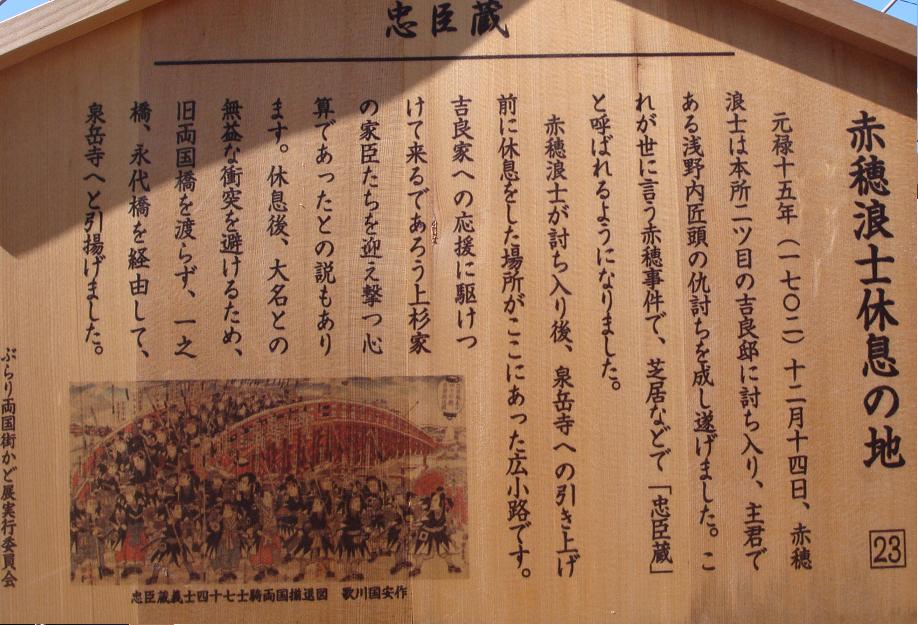 忠臣蔵
赤穂浪士休息の地
23
元禄十五年（一七〇二）十二月十四日、赤穂
浪士は本所二ツ目の吉良邸に討ち入り、主君で
ある浅野内匠頭の仇討ちを成し遂げました。こ
れが世に言う赤穂事件で、芝居などで「忠臣蔵」
と呼ばれるようになりました。
赤穂浪士が討ち入り後、泉岳寺への引き上げ
前に休息をした場所がここにあった広小路です。
吉良家への応援に駆けつ
けて来るであろう上杉家
の家臣たちを迎え撃つ心
算であったとの説もあり
ます。休息後、大名との
無益な衝突を避けるため、
旧両国橋を渡らず、一之
橋、永代橋を経由して、
泉岳寺へと引揚げました。
忠臣蔵義士四十七士騎両国揃退図　歌川国安作
ぶらり両国街かど展実行委員会